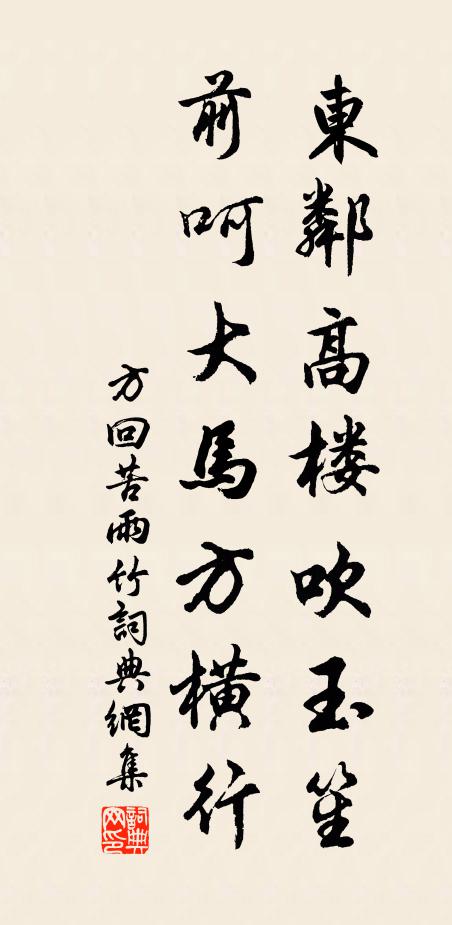 東鄰高楼吹玉笙
前呵大馬方橫行
方回苦雨竹詞典網集
詞典网印